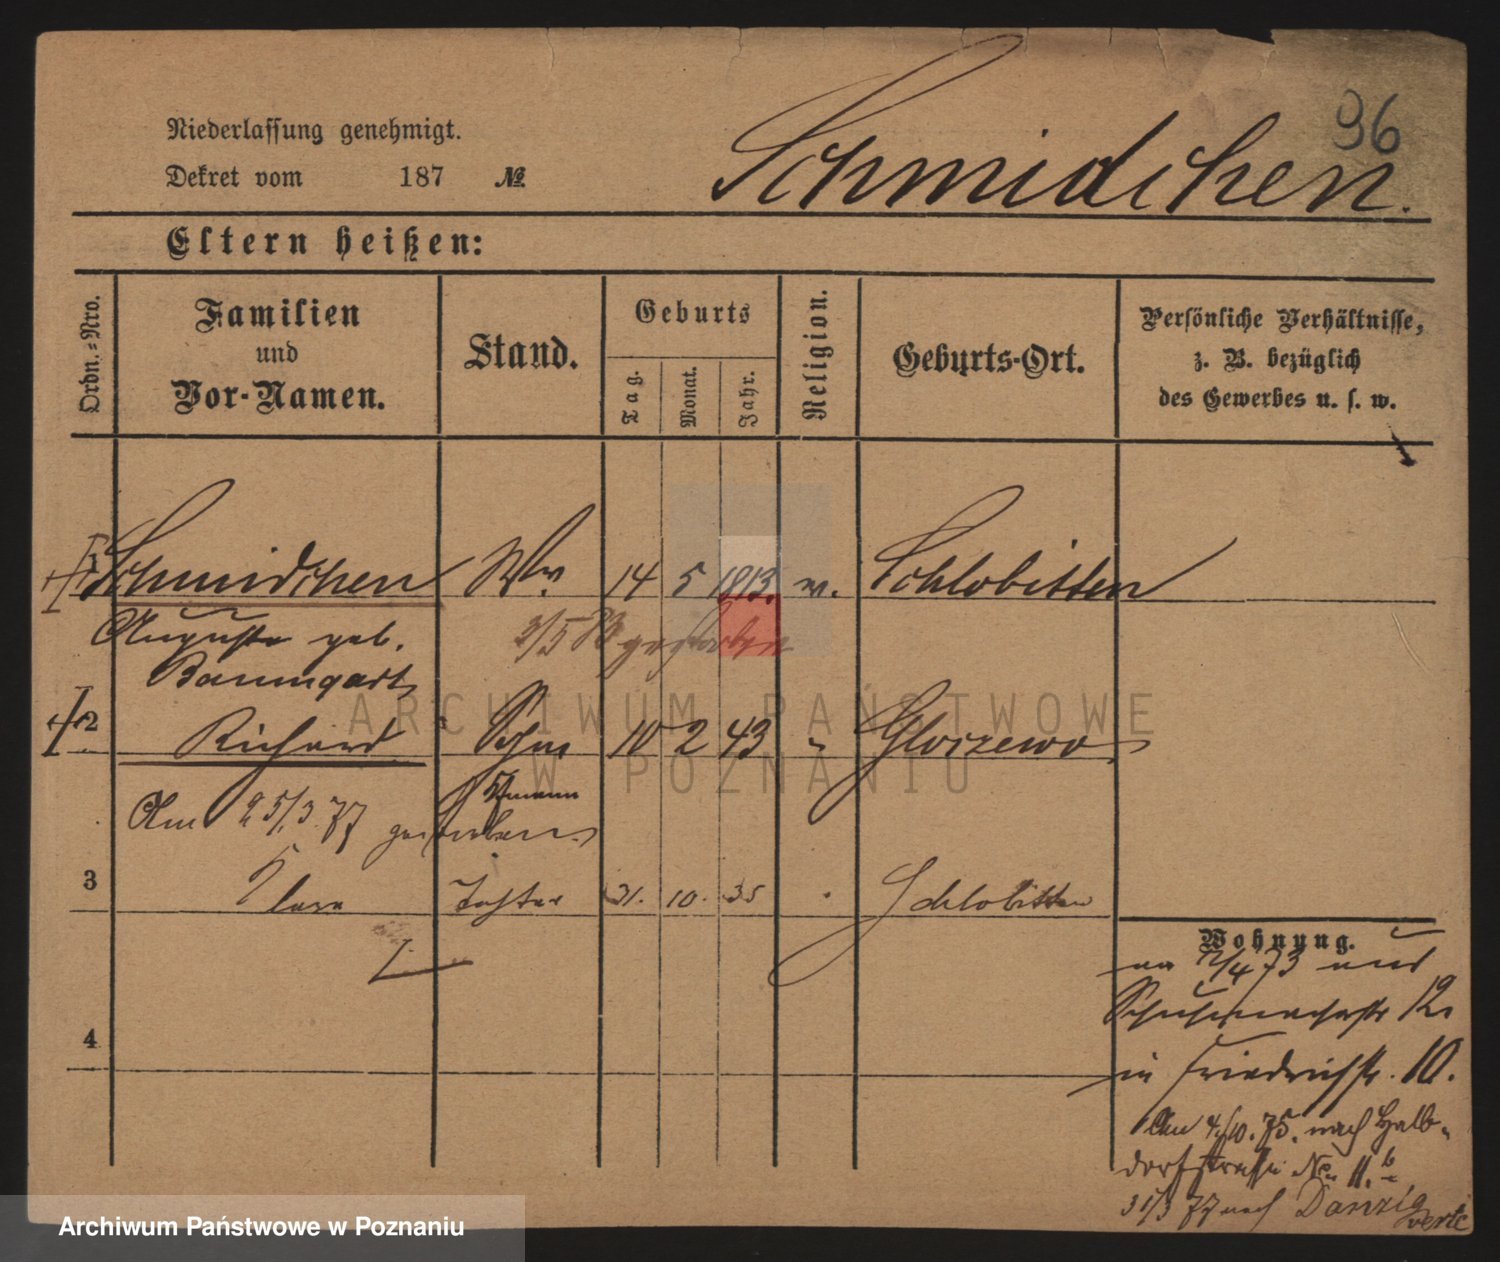 96
Niederlassung genehmigt.
Schmidchen.
Dekret vom 187 №
Eltern heißen:
Ordn.-Nro.
Familien
und
Vor-Namen.
Stand.
Geburts
Tag.
Monat.
Jahr.
Religion.
Geburts-Ort.
Persönliche Verhältnisse,
z. B. bezüglich
des Gewerbes u. s. w.
1 Schmidchen Ww. 14 5 1813. Schlobitten
Auguste geb. gestorben
Baumgart
2 Richard Sohn 10 2 43 " Gloszewo
Am 25/3. 77 gestorben
3 Clara Tochter 31. 10. 35 Schlobitten
Wohnung.
4/73
Schuhmacherstr 12.
in Friedrichstr. 10.
Am 4/10. 75. nach Halb-
dorfstraße No 11.b
31/3 77 nach Danzig
verte
4
ARCHIWUM PAŃSTWOWE
W POZNANIU
Archiwum Państwowe w Poznaniu